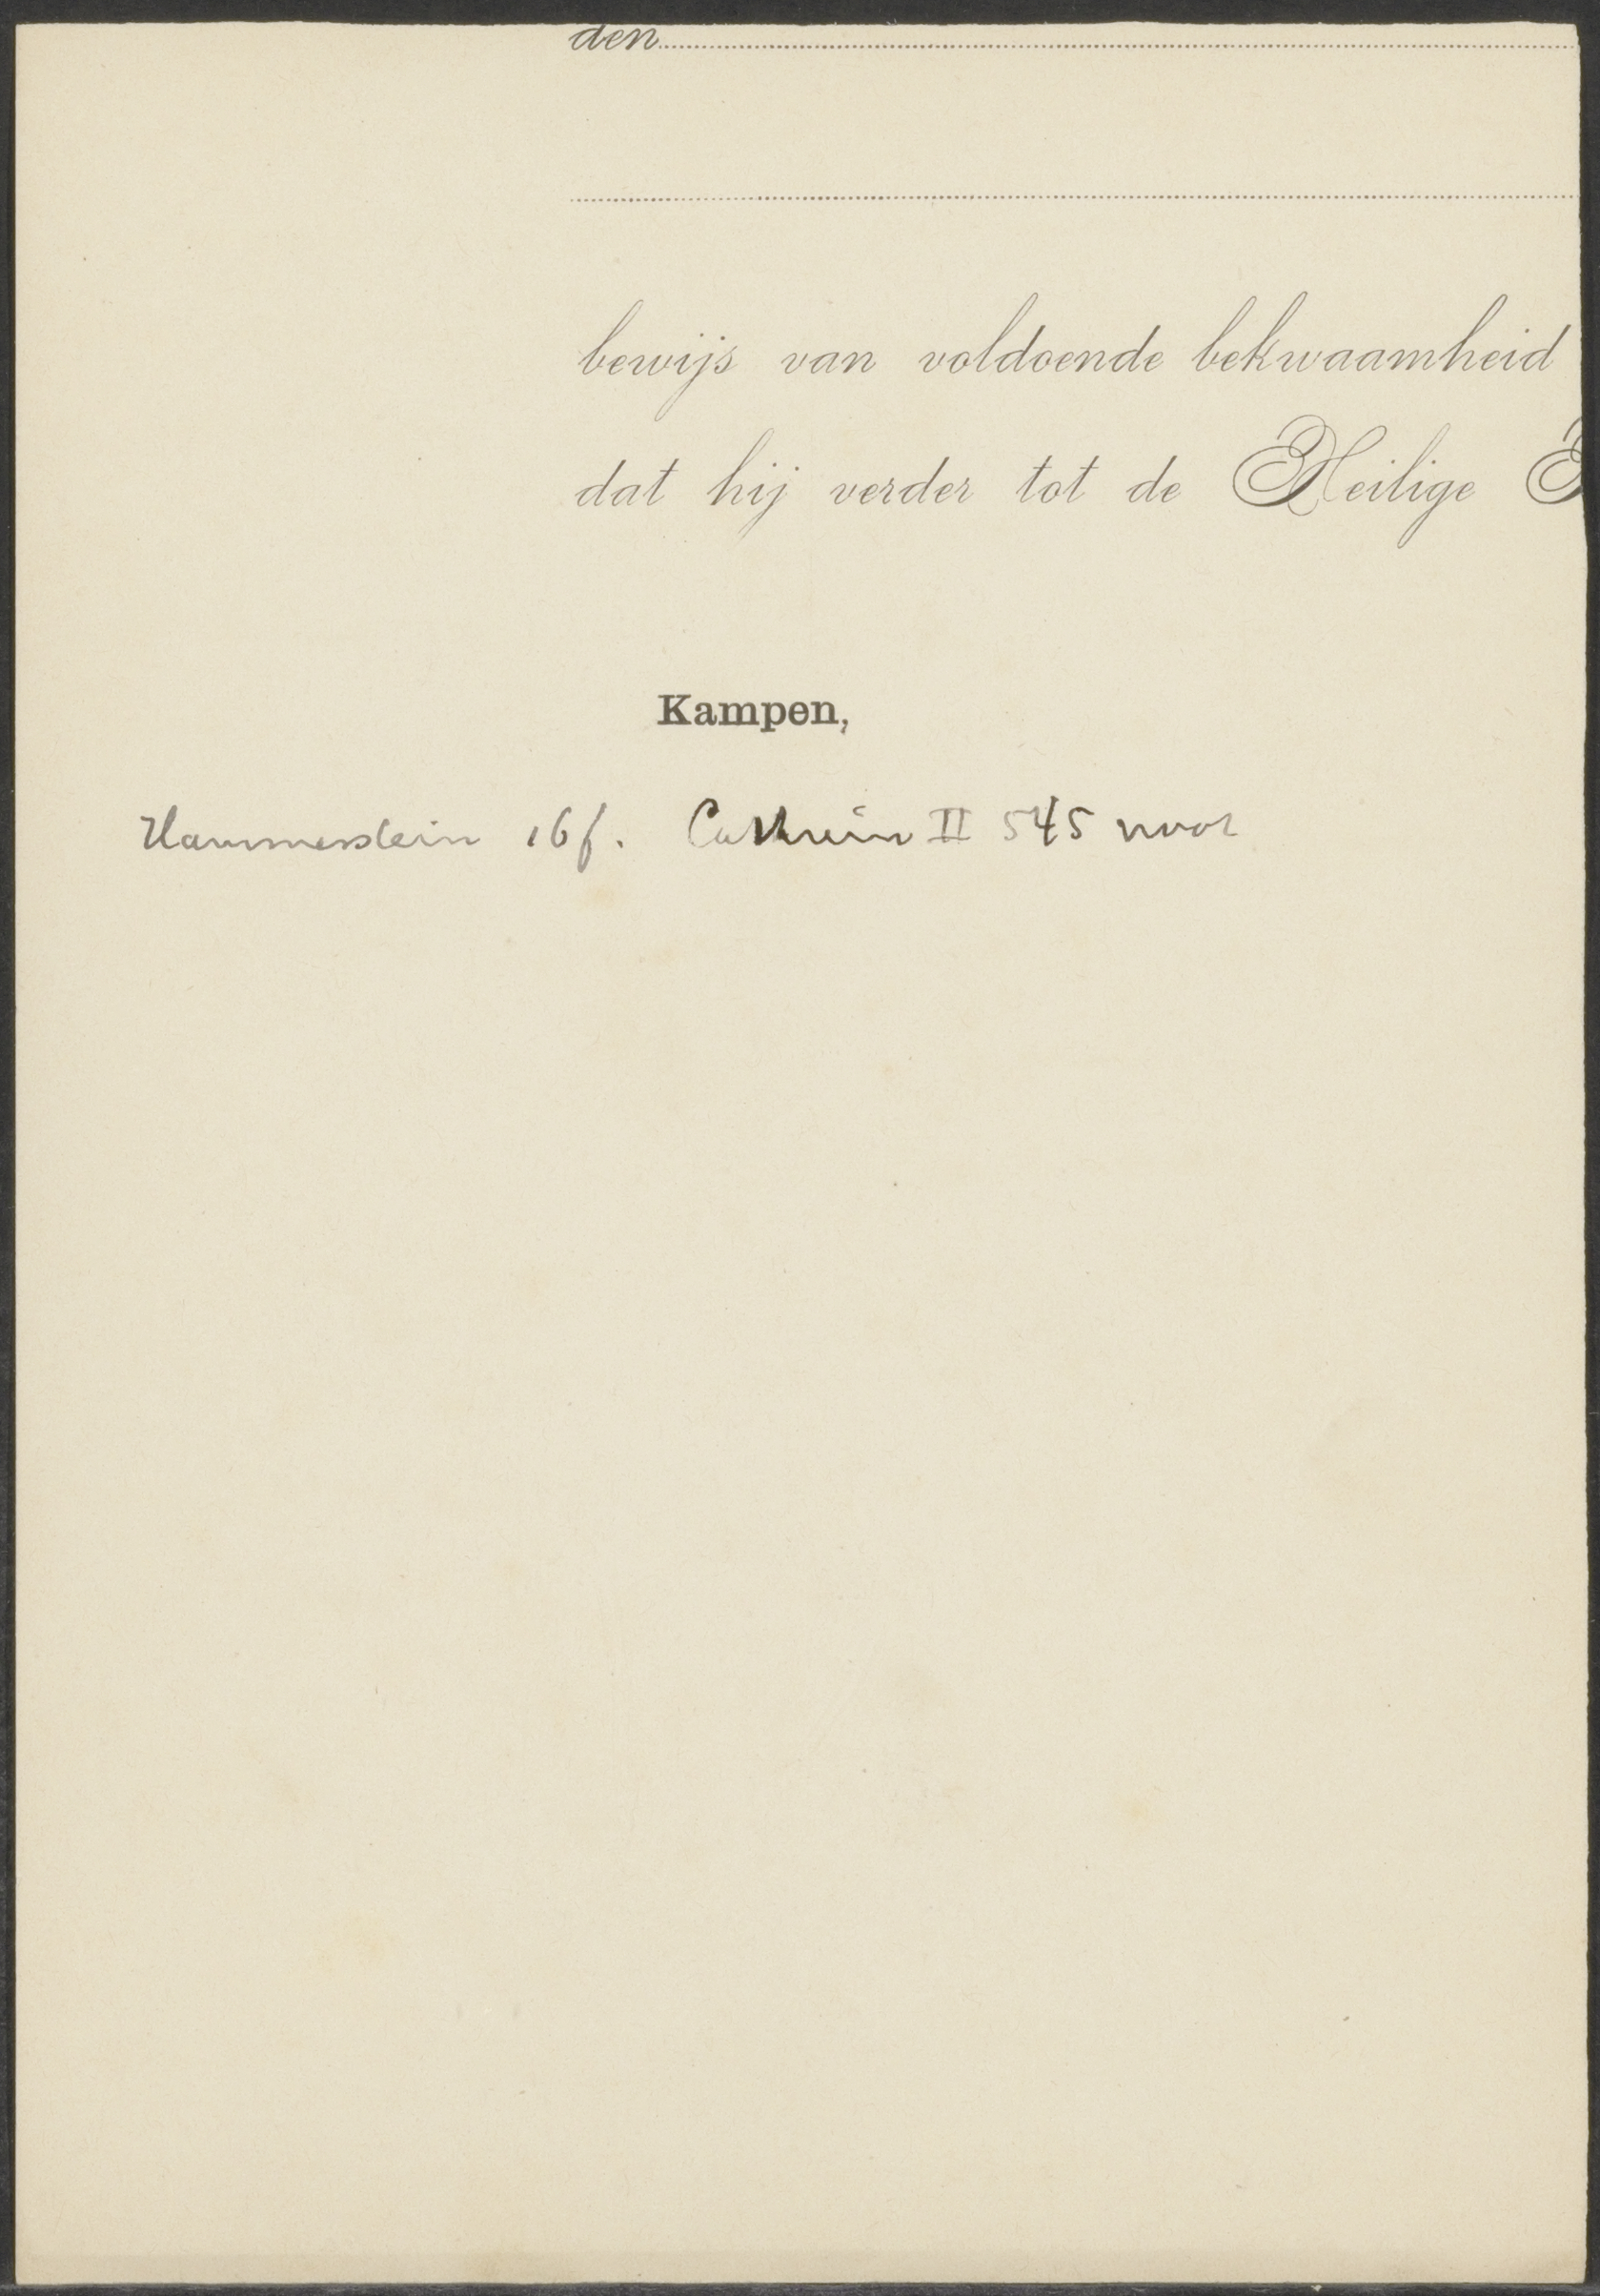 den
bewijs van voldoende bekwaamheid
dat hij verder tot de Heilige
Kampen,
Hammerstein 16f. Cathrein II 545 voor